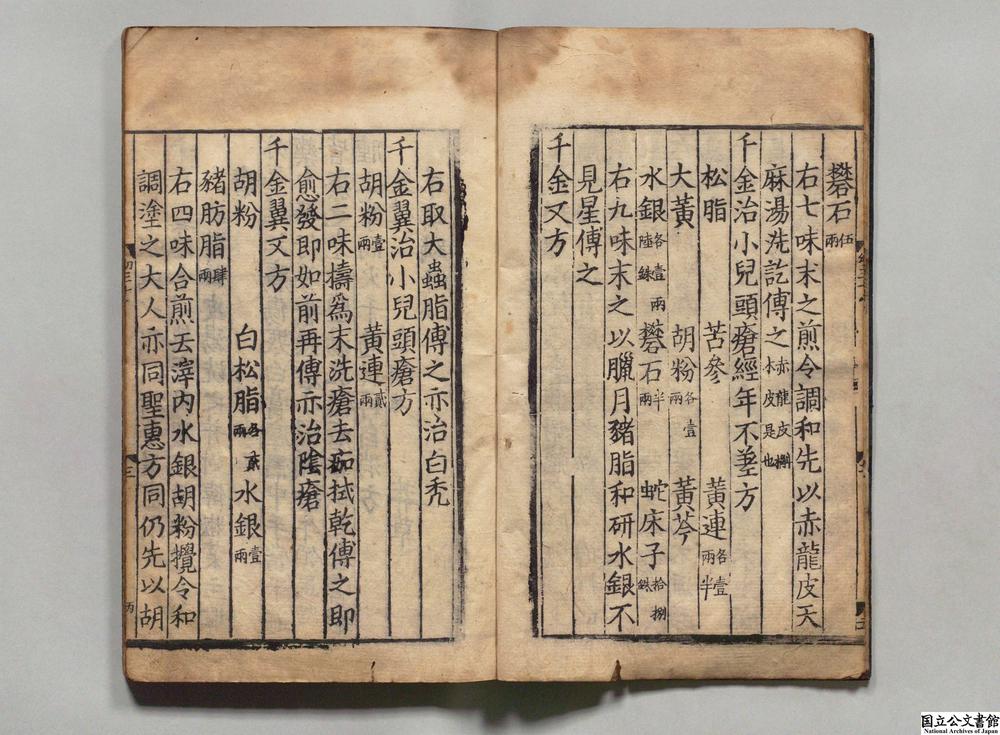 礬石伍兩
右七味末之煎令調和先以赤龍皮天
麻湯洗訖傅之赤龍皮槲木皮是也
千金治小兒頭瘡經年不差方
松脂 苦參 黃連各壹兩半
大黃 胡粉各壹兩 黃芩
水銀各壹兩陸銖 礬石半兩 蛇床子拾捌銖
右九味末之以臘月豬脂和研水銀不
見星傅之
千金又方
右取大蟲脂傅之亦治白禿
千金翼治小兒頭瘡方
胡粉壹兩 黃連貳兩
右二味擣為末洗瘡去痂拭乾傅之即
愈發即如前再傅亦治陰瘡
千金翼又方
胡粉 白松脂各貳兩 水銀壹兩
豬肪脂肆兩
右四味合煎去滓內水銀胡粉攪令和
調塗之大人亦同聖惠方同仍先以胡
国立公文書館
National Archives of Japan